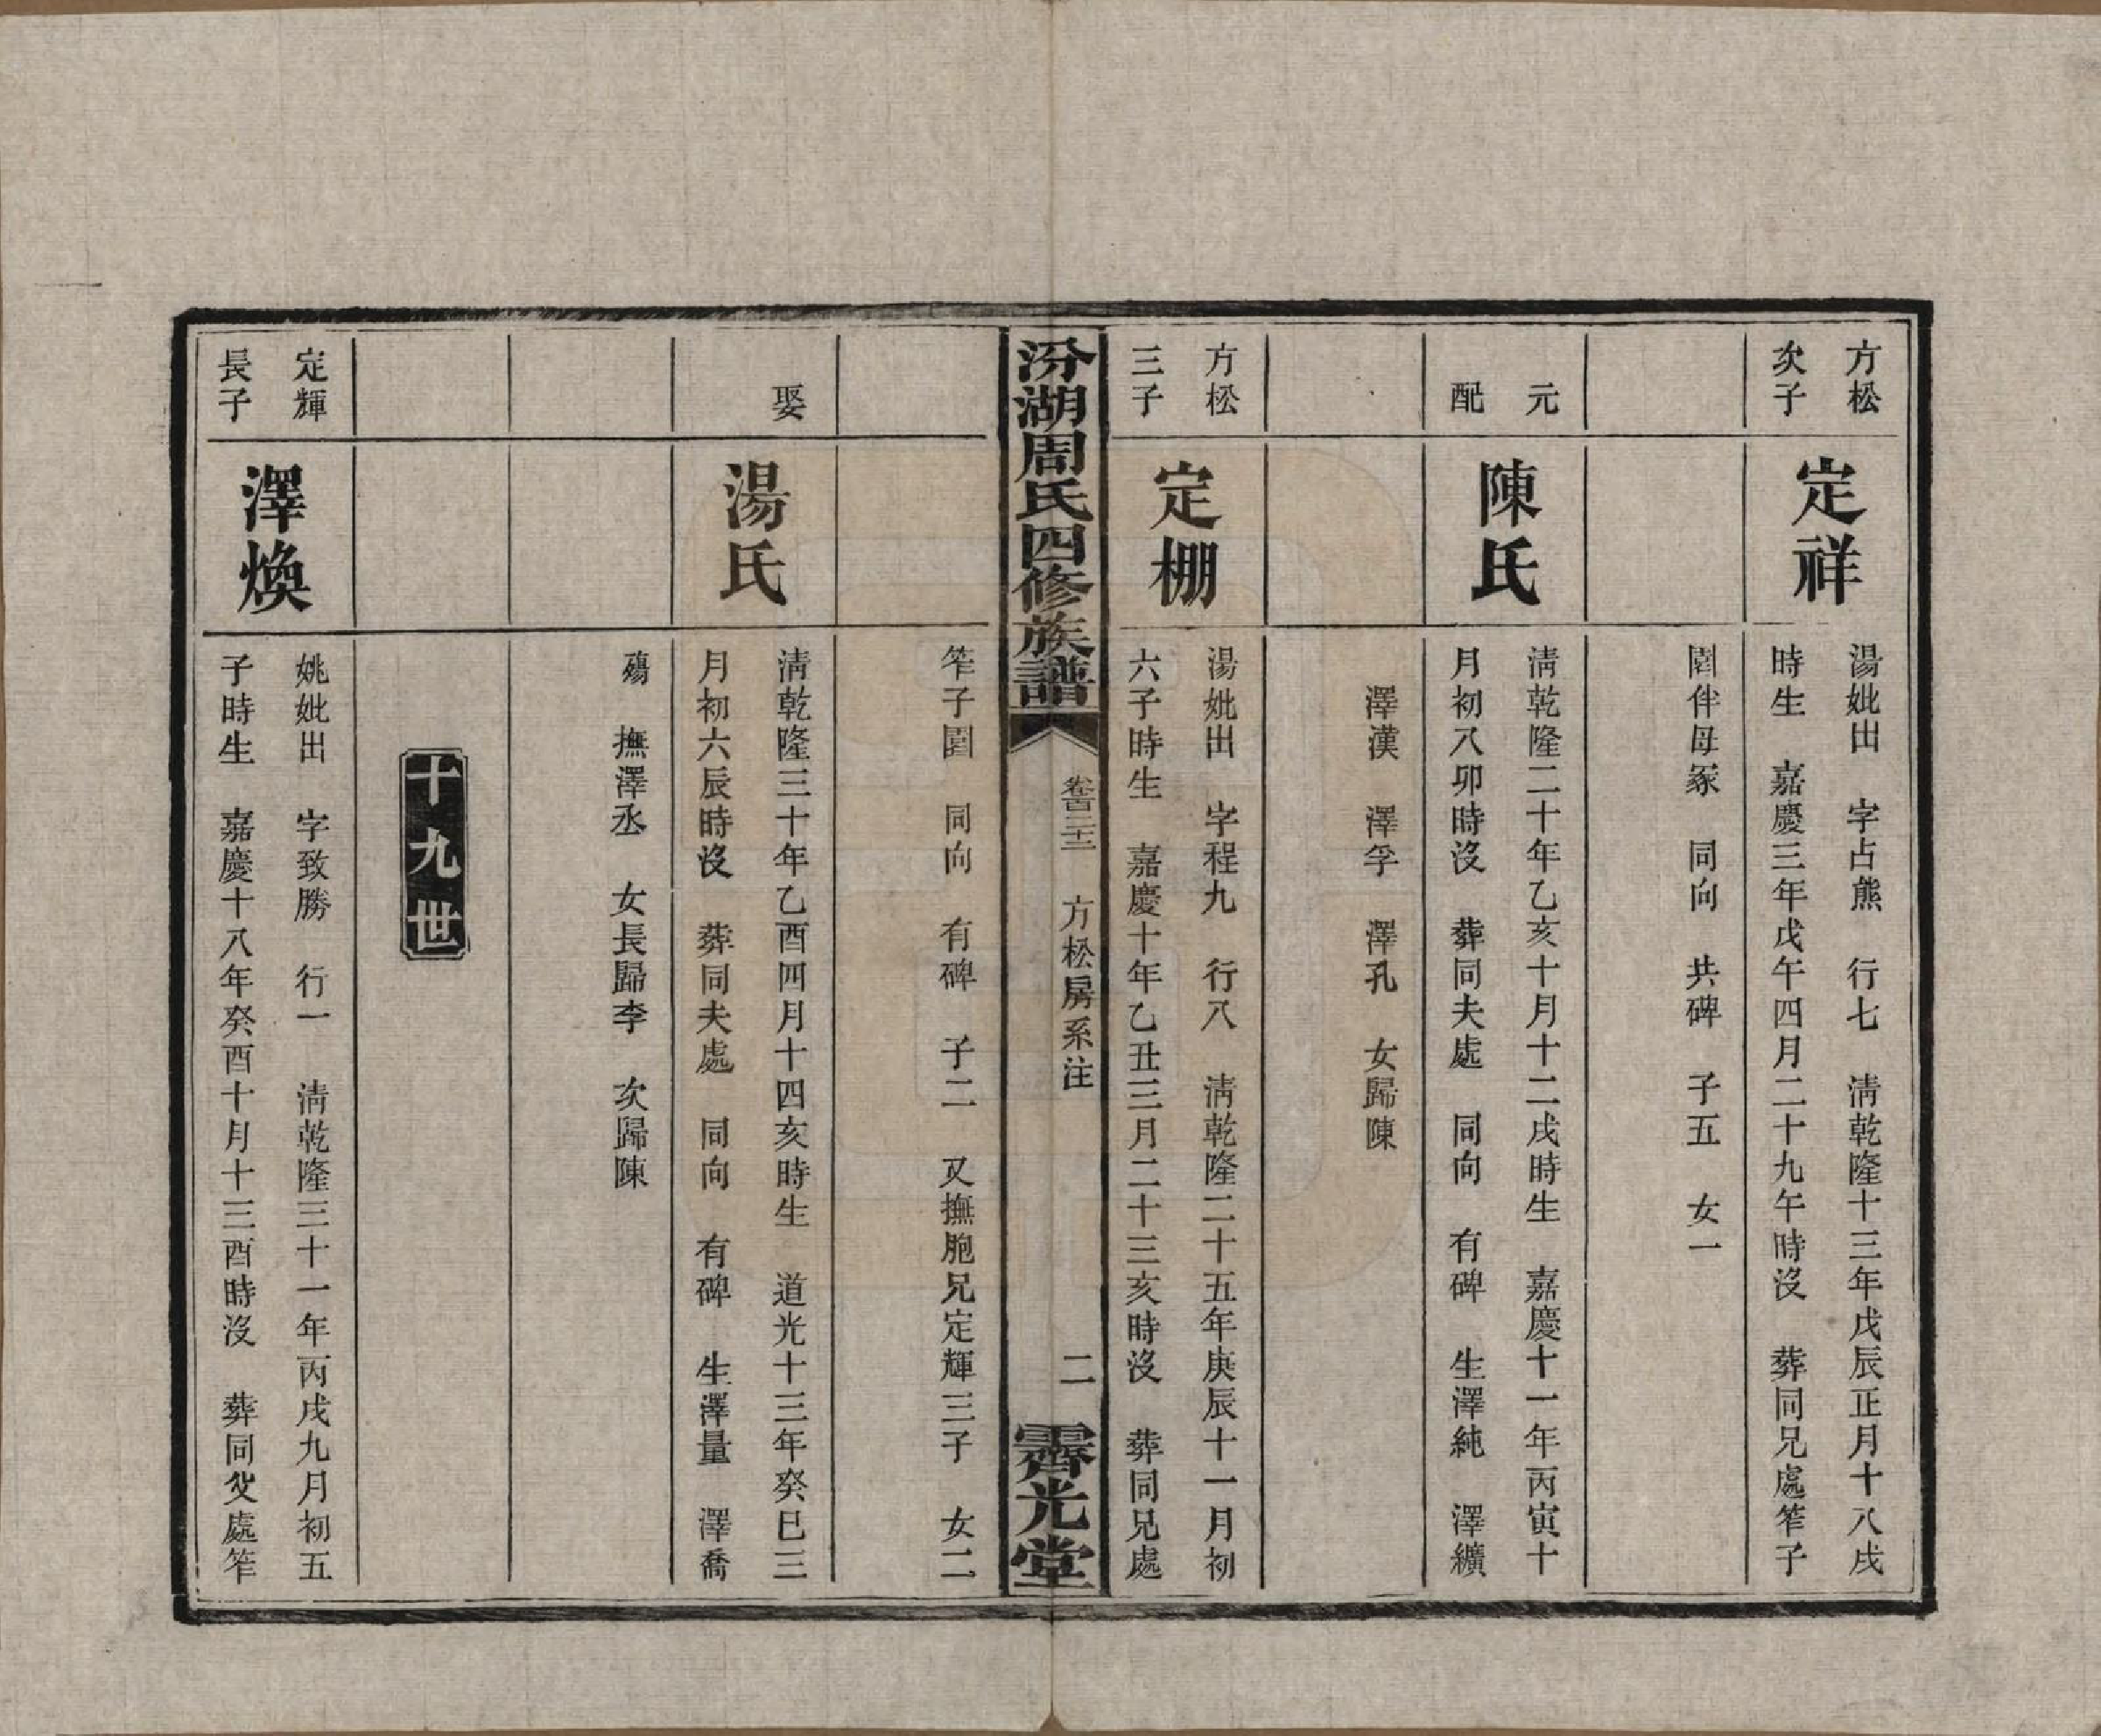 方松
次子
定祥
湯妣出　字占熊　行七　淸乾隆十三年戊辰正月十八戌
時生　嘉慶三年戊午四月二十九午時沒　葬同兄處笮子
園伴母冢　同向　共碑　子五　女一
元
配
陳氏
淸乾隆二十年乙亥十月十二戌時生　嘉慶十一年丙寅十
月初八卯時沒　葬同夫處　同向　有碑　生澤純　澤纊
澤漢　澤孚　澤孔　女歸陳
方松
三子
定棚
湯妣出　字程九　行八　淸乾隆二十五年庚辰十一月初
六子時生　嘉慶十年乙丑三月二十三亥時沒　葬同兄處
汾湖周氏四修族譜
卷百二十三　方松房系注
二
霽光堂
笮子園　同向　有碑　子二　又撫胞兄定輝三子　女二
娶
湯氏
淸乾隆三十年乙酉四月十四亥時生　道光十三年癸巳三
月初六辰時沒　葬同夫處　同向　有碑　生澤量　澤喬
殤　撫澤丞　女長歸李　次歸陳
十九世
定輝
長子
澤煥
姚妣出　字致勝　行一　淸乾隆三十一年丙戌九月初五
子時生　嘉慶十八年癸酉十月十三酉時沒　葬同父處笮